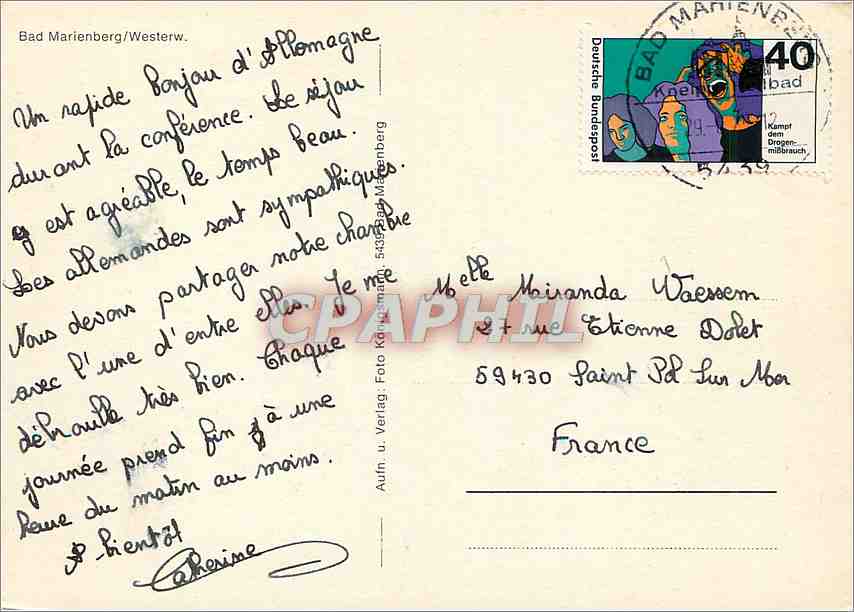 Bad Marienberg/Westerw.
Un rapide bonjour d'Allemagne
durant la conférence. Le séjour
y est agréable, le temps beau.
Les allemandes sont sympathiques.
Nous devons partager notre chambre
avec l'une d'entre elles. Je me
débrouille très bien. Chaque
journée prend fin à une
heure du matin au moins.
A bientôt
Catherine
Aufn. u. Verlag: Foto Königsmann, 5439 Bad Marienberg
Deutsche Bundespost
40
Kampf
dem
Drogen-
mißbrauch
BAD MARIENBERG
5439
CPAPHIL
Melle Miranda Waessem
27 rue Etienne Dolet
59430 Saint Pol Sur Mer
France